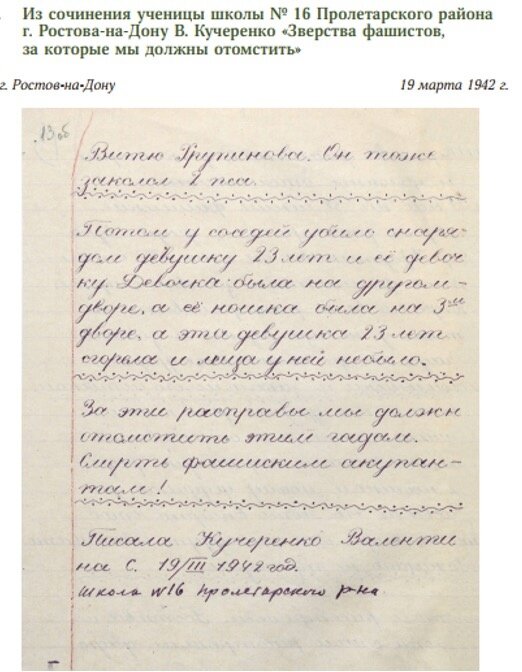 Из сочинения ученицы школы № 16 Пролетарского района
г. Ростова-на-Дону В. Кучеренко «Зверства фашистов,
за которые мы должны отомстить»
г. Ростов-на-Дону 19 марта 1942 г.
13 об
Витю Групинова. Он тоже
заколол 2 пса.
Потом у соседий убило снаря-
дом девушку 23 лет и её девоч
ку. Девочка была на другом-
дворе, а её ношка была на 3ем
дворе, а эта девушка 23 лет
сгорела и лица у ней небыло.
За эти расправы мы должн
отомстить этим гадам.
Смерть фашиским акупан-
там!
Писала Кучеренко Валенти
на С. 19/III 1942 год.
Школа №16 Пролетарского р-на.